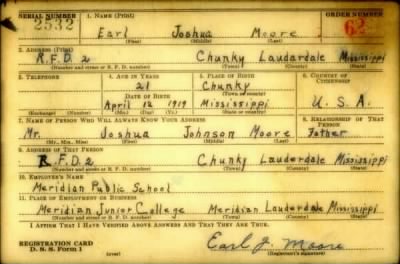 SERIAL NUMBER 1. NAME (Print) ORDER NUMBER
2532 Earl Joshua Moore 62
(First) (Middle) (Last)
2. ADDRESS (Print)
R.F.D. 2 Chunky Lauderdale Mississippi
(Number and street or R. F. D. number) (Town) (County) (State)
3. TELEPHONE 4. AGE IN YEARS 5. PLACE OF BIRTH 6. COUNTRY OF CITIZENSHIP
21 Chunky
DATE OF BIRTH (Town or county)
April 12 1919 Mississippi U.S.A.
(Exchange) (Number) (Mo.) (Day) (Yr.) (State or country)
7. NAME OF PERSON WHO WILL ALWAYS KNOW YOUR ADDRESS 8. RELATIONSHIP OF THAT PERSON
Mr. Joshua Johnson Moore Father
(Mr., Mrs., Miss) (First) (Middle) (Last)
9. ADDRESS OF THAT PERSON
R.F.D. 2 Chunky Lauderdale Mississippi
(Number and street or R. F. D. number) (Town) (County) (State)
10. EMPLOYER'S NAME
Meridian Public School
11. PLACE OF EMPLOYMENT OR BUSINESS
Meridian Junior College Meridian Lauderdale Mississippi
(Number and street or R. F. D. number) (Town) (County) (State)
I AFFIRM THAT I HAVE VERIFIED ABOVE ANSWERS AND THAT THEY ARE TRUE.
REGISTRATION CARD
D. S. S. Form 1 Earl J. Moore
(over) (Registrant's signature)